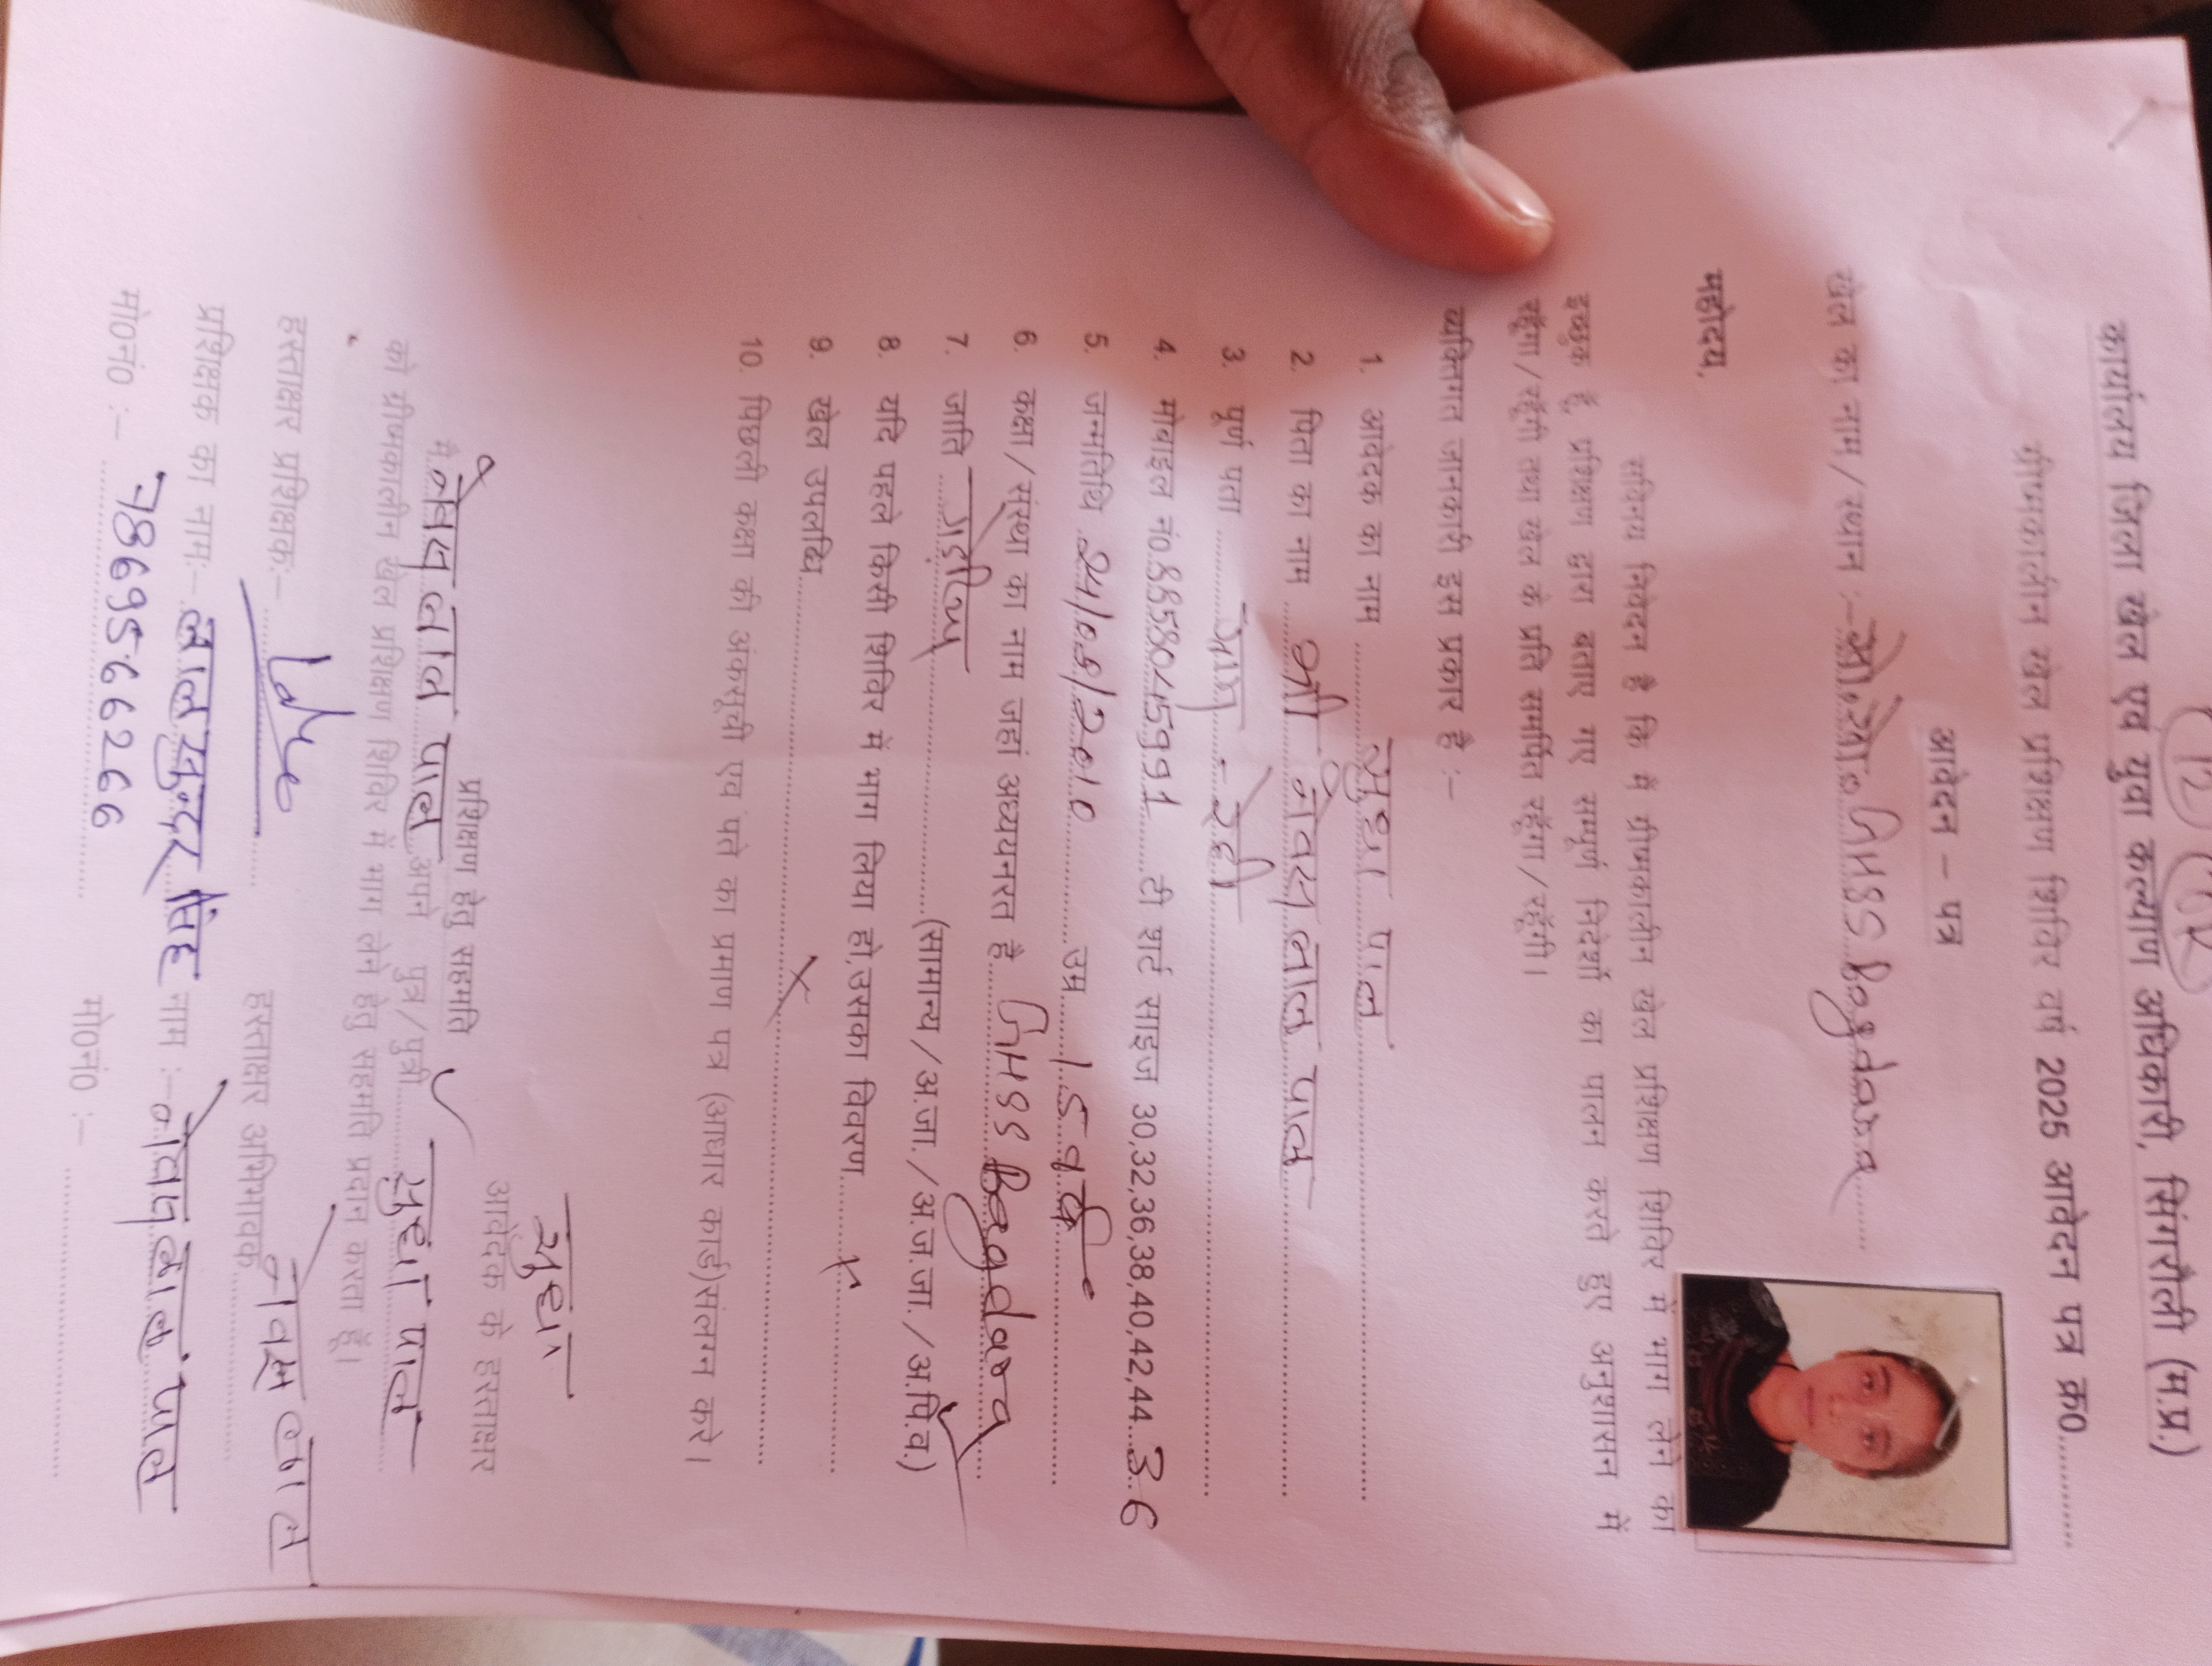 कार्यालय जिला खेल एवं युवा कल्याण अधिकारी, सिंगरौली (म.प्र.)
ग्रीष्मकालीन खेल प्रशिक्षण शिविर वर्ष 2025 आवेदन पत्र क्र0............
आवेदन – पत्र
खेल का नाम/स्थान :– GHSS Bagdara
महोदय,
सविनय निवेदन है कि मै ग्रीष्मकालीन खेल प्रशिक्षण शिविर में भाग लेने का
इच्छुक हूँ, प्रशिक्षण द्वारा बताए गए सम्पूर्ण निदेर्शों का पालन करते हुए अनुशासन में
रहूँगा/रहूँगी तथा खेल के प्रति समर्पित रहूँगा/रहूँगी।
व्यक्तिगत जानकारी इस प्रकार है :–
1. आवेदक का नाम सुधा पाल
2. पिता का नाम श्री लाल पाल
3. पूर्ण पता ग्राम -
4. मोबाइल नं. 8858045991 टी शर्ट साइज 30,32,36,38,40,42,44 36
5. जन्मतिथि उम्र 15 वर्ष
6. कक्षा/संस्था का नाम जहां अध्ययनरत है. GHSS Bagdara
7. जाति (सामान्य/अ.जा./अ.ज.जा./अ.पि.व.)
8. यदि पहले किसी शिविर में भाग लिया हो,उसका विवरण x
9. खेल उपलब्धि x
10. पिछली कक्षा की अंकसूची एवं पते का प्रमाण पत्र (आधार कार्ड)संलग्न करे।
सुधा
आवेदक के हस्ताक्षर
प्रशिक्षण हेतु सहमति
मै लाल पाल अपने पुत्र/पुत्री सुधा पाल
को ग्रीष्मकालीन खेल प्रशिक्षण शिविर में भाग लेने हेतु सहमति प्रदान करता हूँ।
हस्ताक्षर प्रशिक्षक:– हस्ताक्षर अभिभावक लाल
प्रशिक्षक का नाम:– लाल सुन्दर सिंह नाम :– लाल पाल
मो0नं0 :– 7869566266 मो0नं0 :–